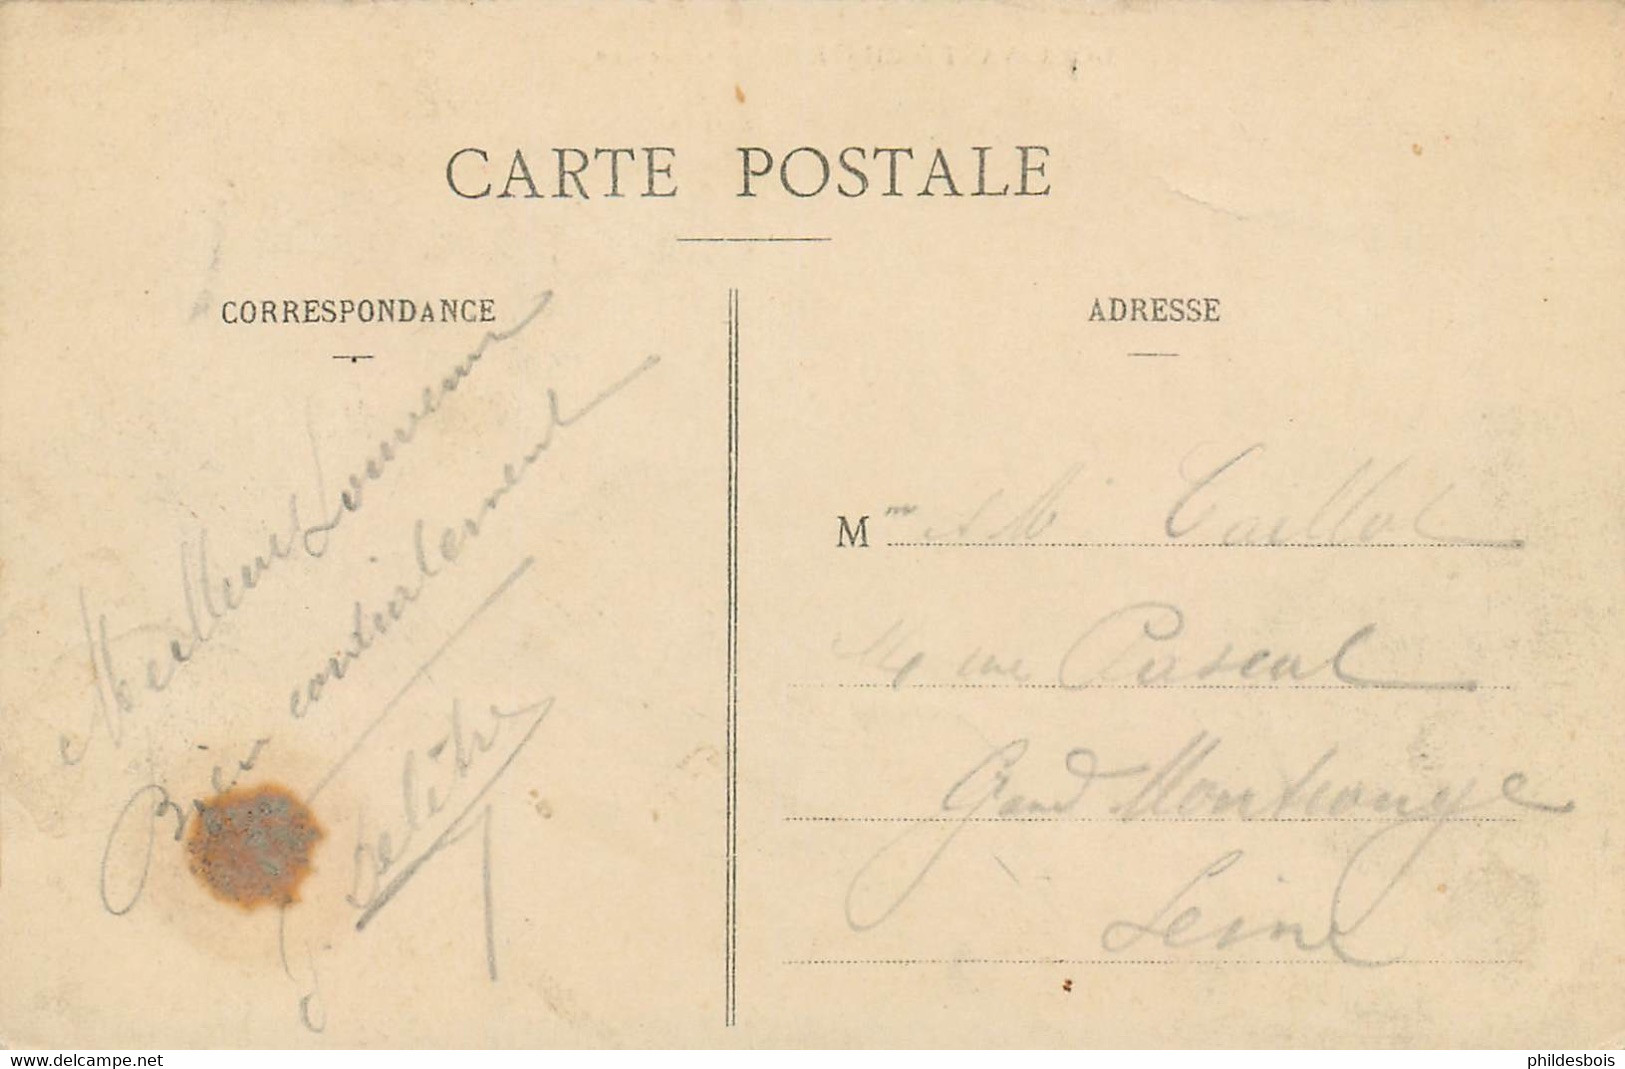 CARTE POSTALE
CORRESPONDANCE
Meilleurs Souvenirs
Bien cordialement
ADRESSE
Mme & Mr Caillot
rue Pascal
Grand Montrouge
Seine
www.delcampe.net
phildesbois